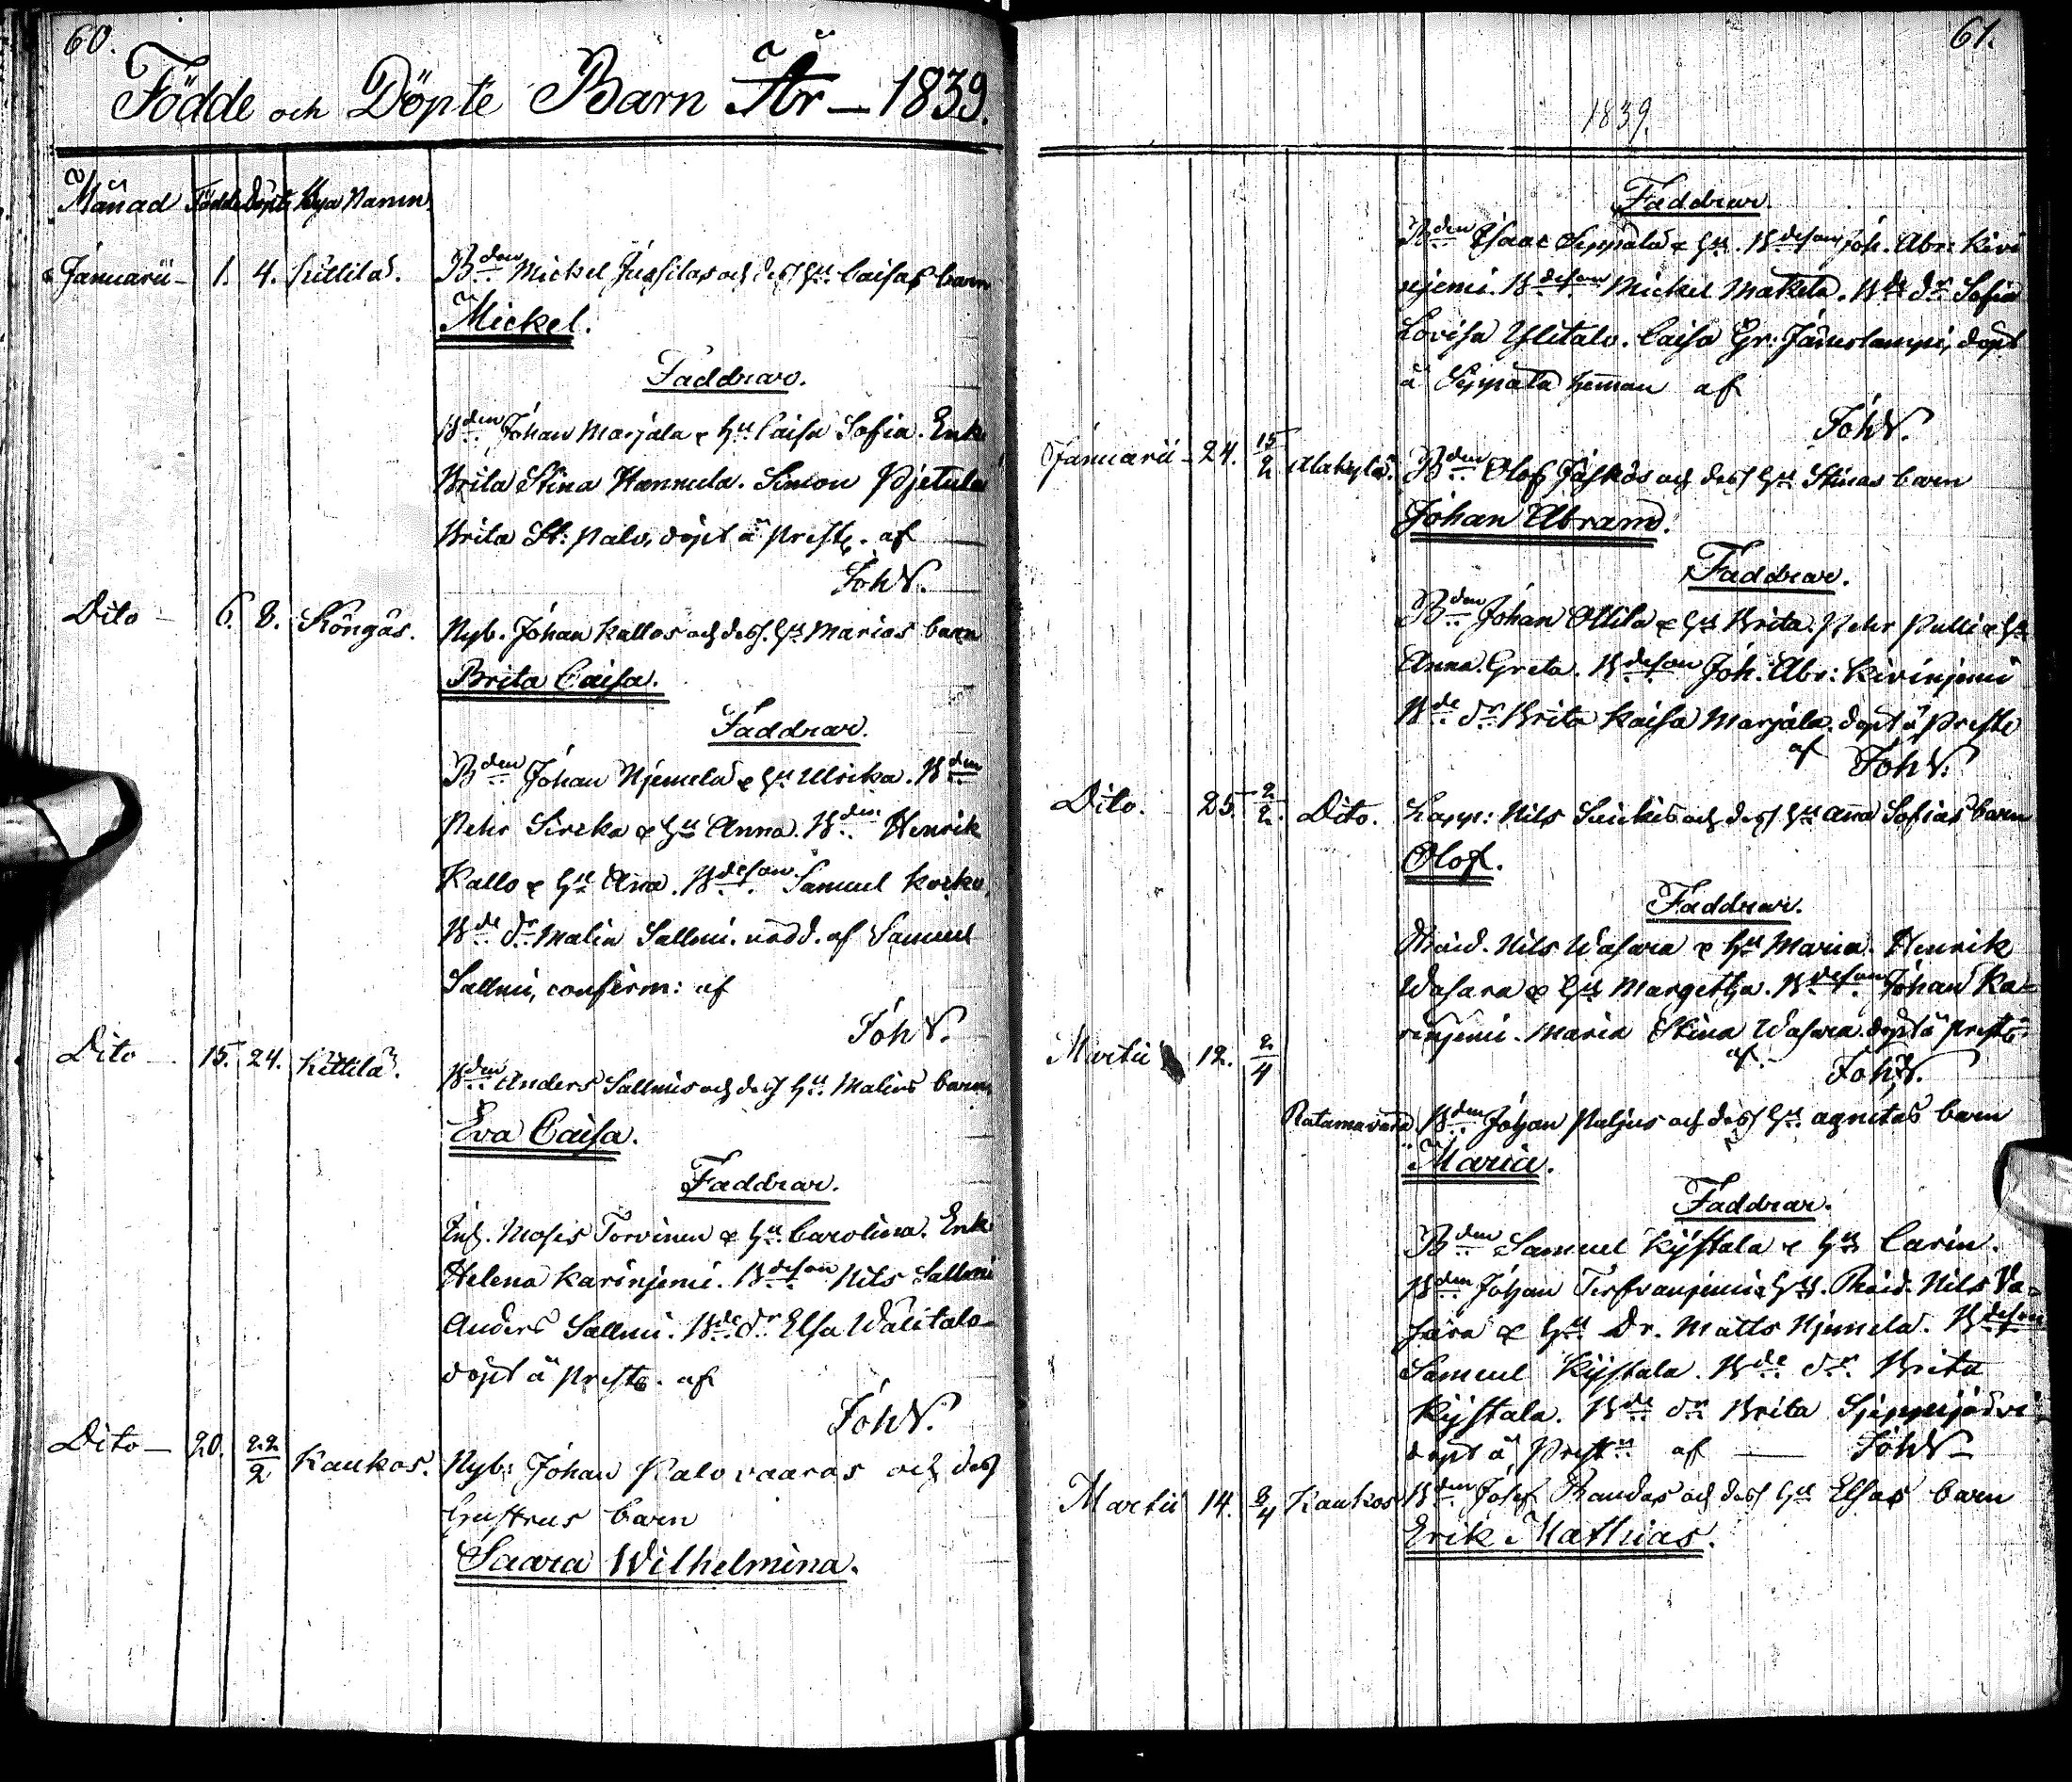 60.
Födde och Döpte Barn År — 1839.
Månad Födde Döpte Bya Namn
Januarii - 1. 4. Kittilä. Bden Mickel Jussilas och dess Hu Caisas barn
Mickel.
Faddrar.
Bden Johan Marjala & Hu Caisa Sofia. Enk.
Brita Stina Hannula. Simon Pjetula
Brita St: Palo, döpt å Prestg. af
Joh W.
Dito — 6. 8. Köngäs. Nyb. Johan Kallos och dess Hu Marias barn
Brita Caisa.
Faddrar.
Bden Johan Njemelä & Hu Ulrika. Bden
Pehr Sircka & Hu Anna. Bden Henrik
Kallo & Hu Anna. Bdeson Samuel
Bde dr Malin Sallmi. nödd. af Samuel
Sallmi, confirm: af
Joh W.
Dito — 15. 24. Kittilä. Bden Anders Sallmis och dess Hu Malins barn
Eva Caisa.
Faddrar.
Inh. Moses Torvinen & Hu Carolina. Enk.
Helena Karinjemi. Bdeson Nils Sallmi
Anders Sallmi. Bde dr Elsa Wälitalo
döpt å Prestg. af
Joh W.
Dito — 20. 22/2 Kaukos. Nyb: Johan Palovaaras och dess
Hustrus barn
Saara Wilhelmina.
61.
1839.
Faddrar.
Bden Isaac Seppälä & Hu. Bdeson Joh. Abr: Kivi
njemi. Bdeson Mickel Matkela. Bde dr Sofia
Lovisa Ylitalo. Caisa Gr: döpt
å Seppälä hemman af
Joh W.
Januarii - 24. 15/2 Alakylä. Bden Olof Jäskös och dess Hu Stinas barn
Johan Abram.
Faddrar.
Bden Johan Ollila & Hu Brita. Pehr Pulli & Hu
Anna Greta. Bdeson Joh. Abr: Kivinjemi
Bde dr Brita Kaisa Marjala. döpt å Prestg
af Joh W.
Dito. 25. 2/2. Dito. Nils och dess Hu Anna Sofias barn
Olof.
Faddrar.
Nils Wasara & Hu Maria. Henrik
Wasara & Hu Margetha. Bdeson Johan Ka=
rinjemi. Maria Stina Wasara. döpt å Prestg
af. Joh W.
Martii 12. 2/4
Ratamavara Bden Johan Paljus och dess Hu Agnetas barn
Maria.
Faddrar.
Bden Samuel Kystala & Hu Carin.
Bden Johan & Hu. Nils Va=
sara & Hu Dr. Matts Njemela. Bdeson
Samuel Kystala. Bde dr Brita
Kystala. Bde dr Brita
döpt å Prestg af — Joh W —
Martii 14. 3/4 Kaukos Bden Josef Randas och dess Hu Elsas barn
Erik Mathias.